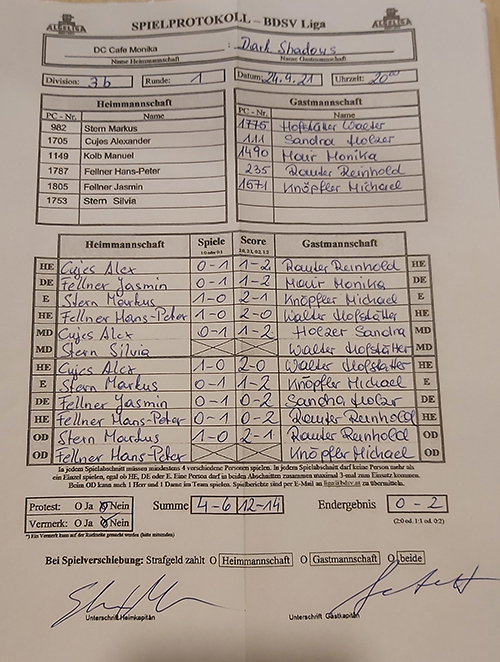 SPIELPROTOKOLL – BDSV Liga
DC Cafe Monika : Dark Shadows
Name Heimmannschaft Name Gastmannschaft
Division: 3b Runde: 1 Datum: 24.9.21 Uhrzeit: 20⁰⁰
Heimmannschaft Gastmannschaft
PC - Nr. Name PC - Nr. Name
982 Stern Markus 1775 Hofstätter Walter
1705 Cujes Alexander 111 Sandra Holzer
1149 Kolb Manuel 1490 Mair Monika
1787 Fellner Hans-Peter 235 Rauter Reinhold
1805 Fellner Jasmin 1671 Knöpfler Michael
1753 Stern Silvia
Heimmannschaft Spiele Score Gastmannschaft
1:0 oder 0:1 2:0, 2:1, 0:2, 1:2
HE Cujes Alex 0-1 1-2 Rauter Reinhold HE
DE Fellner Jasmin 0-1 1-2 Mair Monika DE
E Stern Markus 1-0 2-1 Knöpfler Michael E
HE Fellner Hans-Peter 1-0 2-0 Walter Hofstätter HE
MD Cujes Alex 0-1 1-2 Holzer Sandra MD
MD Stern Silvia Walter Hofstätter MD
HE Cujes Alex 1-0 2-0 Walter Hofstätter HE
E Stern Markus 0-1 1-2 Knöpfler Michael E
DE Fellner Jasmin 0-1 0-2 Sandra Holzer DE
HE Fellner Hans-Peter 0-1 0-2 Rauter Reinhold HE
OD Stern Markus 1-0 2-1 Rauter Reinhold OD
OD Fellner Hans-Peter Knöpfler Michael OD
In jedem Spielabschnitt müssen mindestens 4 verschiedene Personen spielen. In jedem Spielabschnitt darf keine Person mehr als
ein Einzel spielen, egal ob HE, DE oder E. Eine Person darf in beiden Abschnitten zusammen maximal 3-mal zum Einsatz kommen.
Beim OD kann auch 1 Herr und 1 Dame im Team spielen. Spielberichte sind per E-Mail an liga@bdsv.at zu übermitteln.
Protest: O Ja O Nein Summe 4-6 12-14 Endergebnis 0-2
Vermerk: O Ja O Nein (2:0 od. 1:1 od. 0:2)
*) Ein Vermerk kann auf der Rückseite gemacht werden (bitte mitsenden)
Bei Spielverschiebung: Strafgeld zahlt O Heimmannschaft O Gastmannschaft O beide
Unterschrift Heimkapitän Unterschrift Gastkapitän